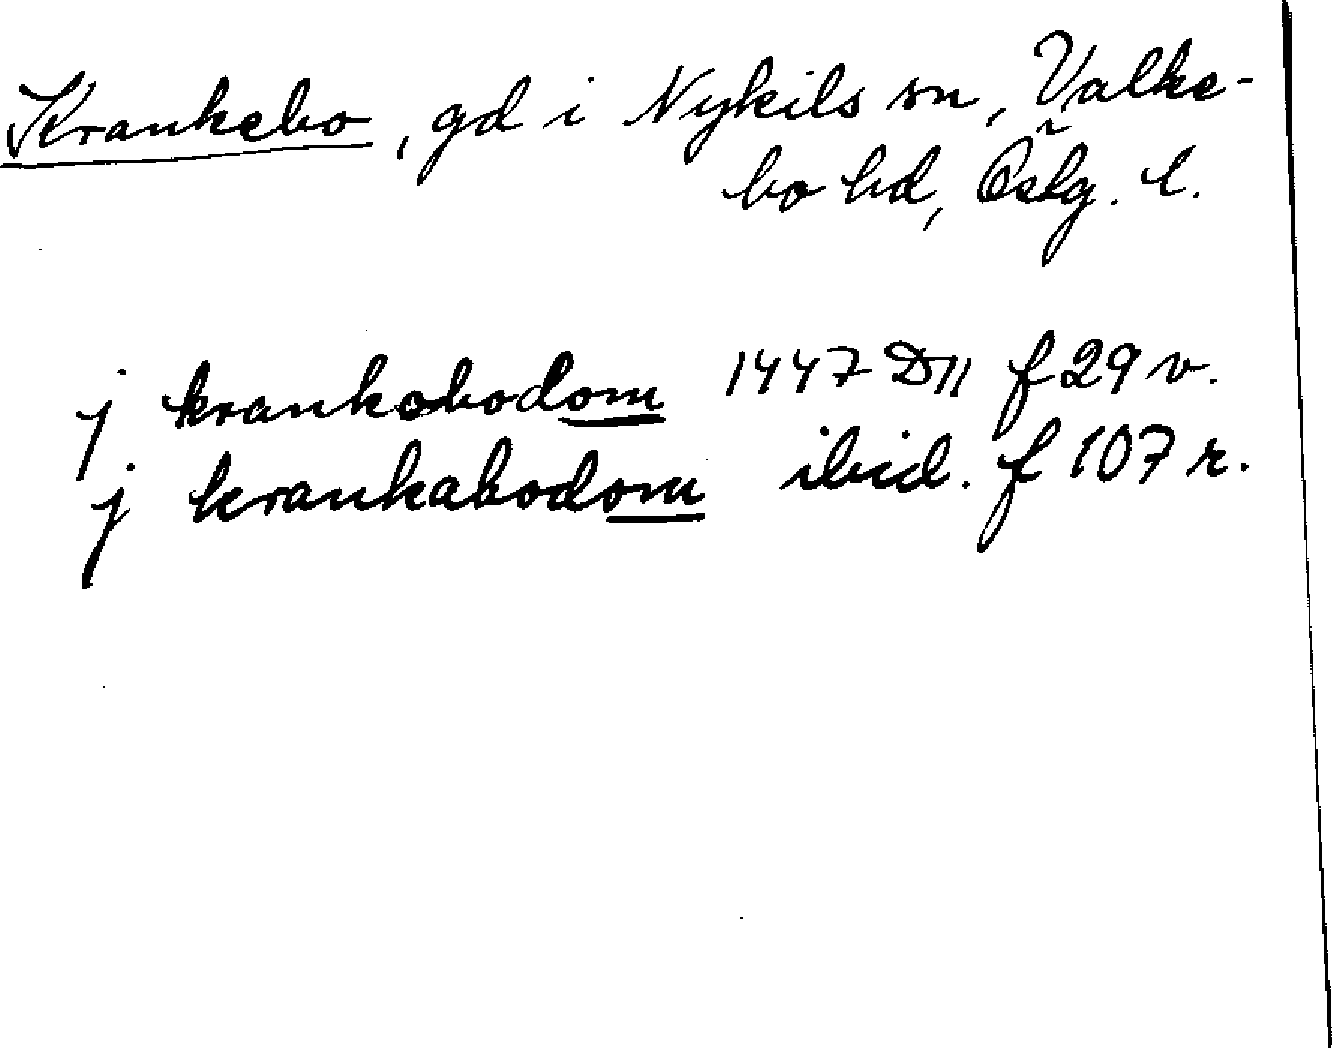 Krankebo, gd i Nykils sn, Valke-
bo hd, Östg. l.
j krankobodom 1447 D11 f 29 v.
j krankabodom ibid. f 107 r.